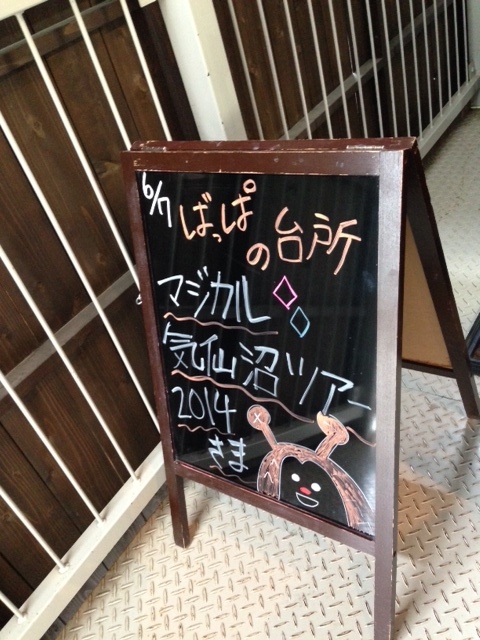 6/7
ばっぱ
の台所
マジカル
気仙沼ツアー
2014
さま